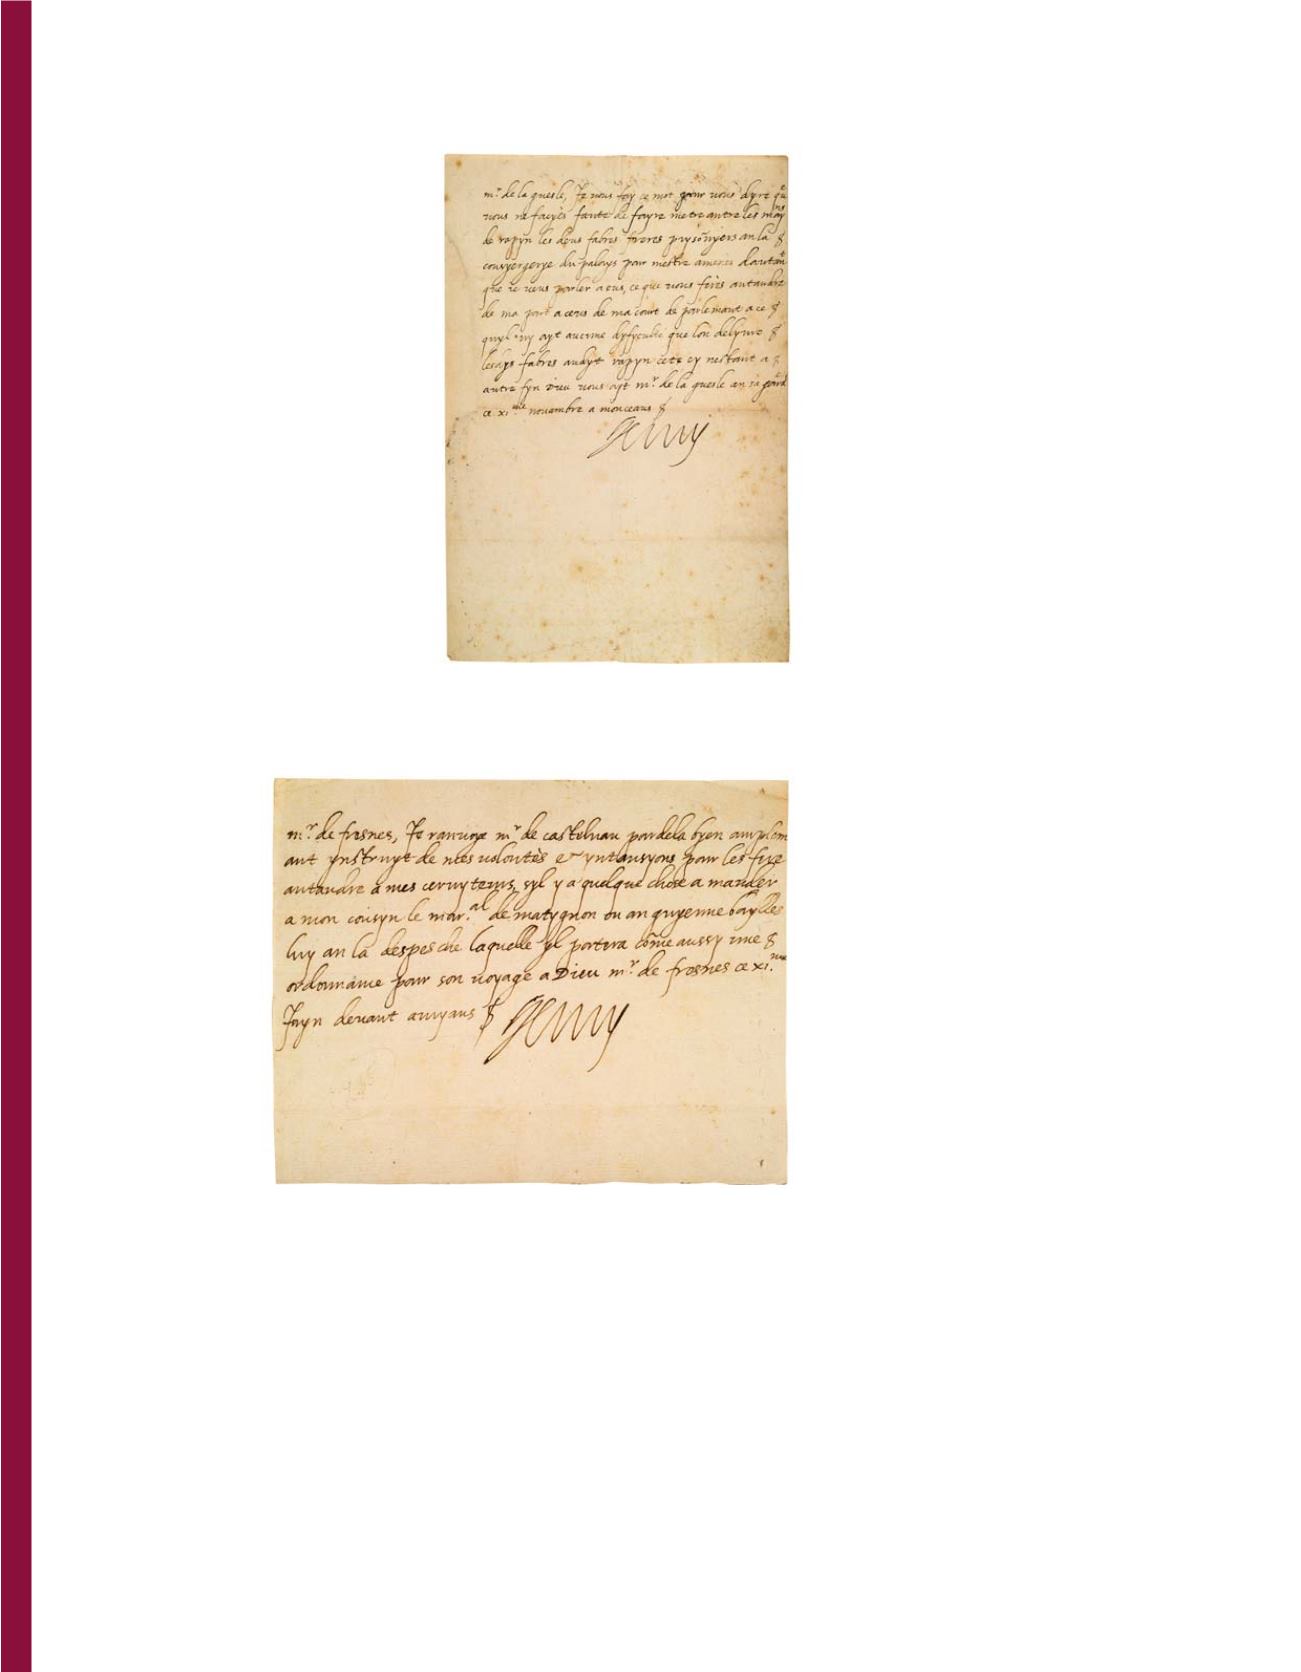 mr de la guesle, Je vous fay ce mot pour vous dyre que
vous ne facyés faute de fayre metre antre les mayns
de rapyn les deus fabres freres prysonyers an la
consyergerye du palays pour mestre amenes dautant
que je veus parler a eus, ce que vous feres antandre
de ma part a ceus de ma court de parlemant a ce
quyl ny ayt aucune dyfyculté que lon delyvre
lesdys fabres audyt rapyn cete cy nestant a
autre fyn Dieu vous ayt mr de la guesle an sa garde
ce xime novambre a monceaus
Henry
mr de fresnes, Je ranvoye mr de castelnau par dela byen amplem
ant ynstruyt de mes volontés & yntansyons pour les fere
antandre a mes servyteurs, syl y a quelque chose a mander
a mon cousyn le mar.al de matygnon ou an guyenne baylles
luy an la despesche laquelle yl portera cõme aussy une
ordonnance pour son voyage a Dieu mr de fresnes ce xime
Juyn devant amyans Henry